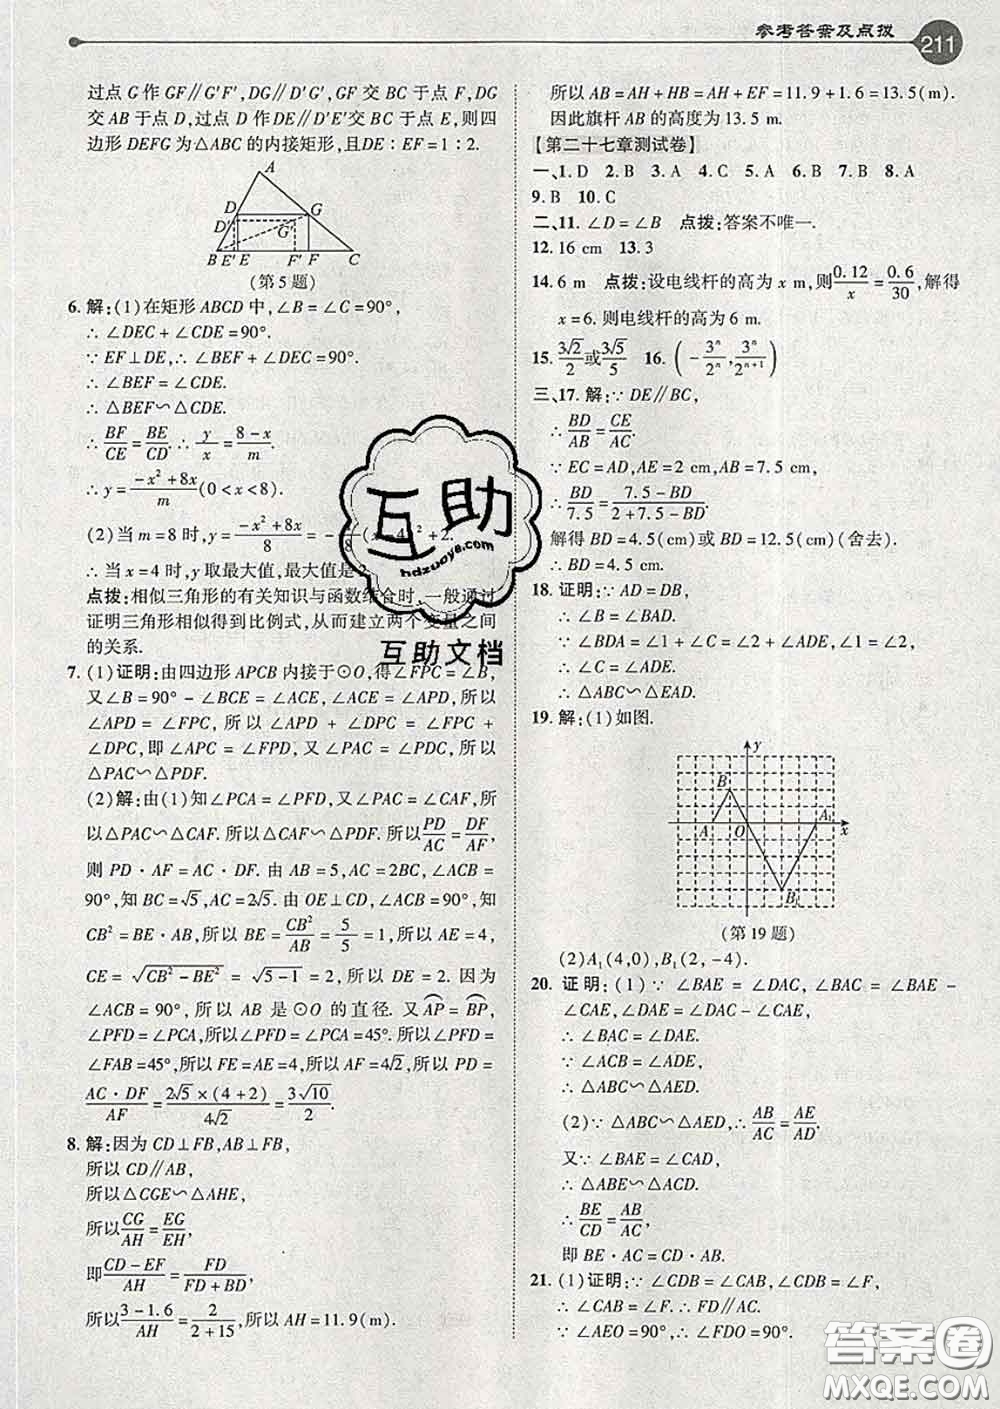 参考答案及点拨
211
过点 G 作 GF∥G′F′,DG∥D′G′,GF 交 BC 于点 F,DG
交 AB 于点 D,过点 D 作 DE∥D′E′交 BC 于点 E,则四
边形 DEFG 为△ABC 的内接矩形,且DE∶EF=1∶2.
A
D G
D′ G′
B E′ E F′ F C
(第 5 题)
6. 解:(1)在矩形 ABCD 中,∠B=∠C=90°,
∴ ∠DEC+∠CDE=90°.
∵ EF⊥DE,∴ ∠BEF+∠DEC=90°,
∴ ∠BEF=∠CDE.
∴ △BEF∽△CDE.
∴ BF/CE=BE/CD. ∴ y/x=(8-x)/m.
∴ y=(-x²+8x)/m(0<x<8).
(2)当 m=8 时,y=(-x²+8x)/8=-1/8(x-4)²+2.
∴ 当 x=4 时,y 取最大值,最大值是
点拨:相似三角形的有关知识与函数结合时,一般通过
证明三角形相似得到比例式,从而建立两个变量之间
的关系.
7. (1)证明:由四边形 APCB 内接于⊙O,得∠FPC=∠B,
又∠B=90°-∠BCE=∠ACE,∠ACE=∠APD,所以
∠APD=∠FPC,所以∠APD+∠DPC=∠FPC+
∠DPC,即∠APC=∠FPD,又∠PAC=∠PDC,所以
△PAC∽△PDF.
(2)解:由(1)知∠PCA=∠PFD,又∠PAC=∠CAF,所
以△PAC∽△CAF. 所以△CAF∽△PDF. 所以PD/AC=DF/AF,
则 PD·AF=AC·DF. 由 AB=5,AC=2BC,∠ACB=
90°,知 BC=√5,AC=2√5. 由 OE⊥CD,∠ACB=90°,知
CB²=BE·AB,所以 BE=CB²/AB=5/5=1,所以 AE=4,
CE=√(CB²-BE²)=√(5-1)=2,所以 DE=2. 因为
∠ACB=90°,所以 AB 是⊙O 的直径. 又AP⌒=BP⌒,
∠PFD=∠PCA,所以∠PFD=∠PCA=45°. 所以∠PFD=
∠FAB=45°,所以 FE=AE=4,所以 AF=4√2,所以 PD=
AC·DF/AF=2√5×(4+2)/4√2=3√10/2.
8. 解:因为 CD⊥FB,AB⊥FB,
所以 CD∥AB,
所以△CGE∽△AHE,
所以CG/AH=EG/EH,
即(CD-EF)/AH=FD/(FD+BD),
所以(3-1.6)/AH=2/(2+15),所以 AH=11.9(m).
所以 AB=AH+HB=AH+EF=11.9+1.6=13.5(m).
因此旗杆 AB 的高度为 13.5 m.
【第二十七章测试卷】
一、1. D 2. B 3. A 4. C 5. A 6. B 7. B 8. A
9. B 10. C
二、11. ∠D=∠B 点拨:答案不唯一.
12. 16 cm 13. 3
14. 6 m 点拨:设电线杆的高为 x m,则0.12/x=0.6/30,解得
x=6. 则电线杆的高为 6 m.
15. 3√2/2或3√5/5 16. (-3ⁿ/2ⁿ,3ⁿ/2ⁿ⁺¹)
三、17. 解:∵ DE∥BC,
∴ BD/AB=CE/AC.
∵ EC=AD,AE=2 cm,AB=7.5 cm,
∴ BD/7.5=(7.5-BD)/(2+7.5-BD).
解得 BD=4.5(cm)或 BD=12.5(cm)(舍去).
∴ BD=4.5 cm.
18. 证明:∵ AD=DB,
∴ ∠B=∠BAD.
∵ ∠BDA=∠1+∠C=∠2+∠ADE,∠1=∠2,
∴ ∠C=∠ADE.
∴ △ABC∽△EAD.
19. 解:(1)如图.
y
B
A O A₁ x
B₁
(第 19 题)
(2)A₁(4,0),B₁(2,-4).
20. 证明:(1)∵ ∠BAE=∠DAC,∠BAC=∠BAE-
∠CAE,∠DAE=∠DAC-∠CAE,
∴ ∠BAC=∠DAE.
∵ ∠ACB=∠ADE,
∴ △ABC∽△AED.
(2)∵ △ABC∽△AED,∴ AB/AC=AE/AD.
又∵ ∠BAE=∠CAD,
∴ △ABE∽△ACD.
∴ BE/CD=AB/AC,
即 BE·AC=CD·AB.
21. (1)证明:∵ ∠CDB=∠CAB,∠CDB=∠F,
∴ ∠CAB=∠F. ∴ FD∥AC.
∵ ∠AEO=90°,∴ ∠FDO=90°.
互助
hdzuoye.com
互助文档
答案圈
MXQE.COM